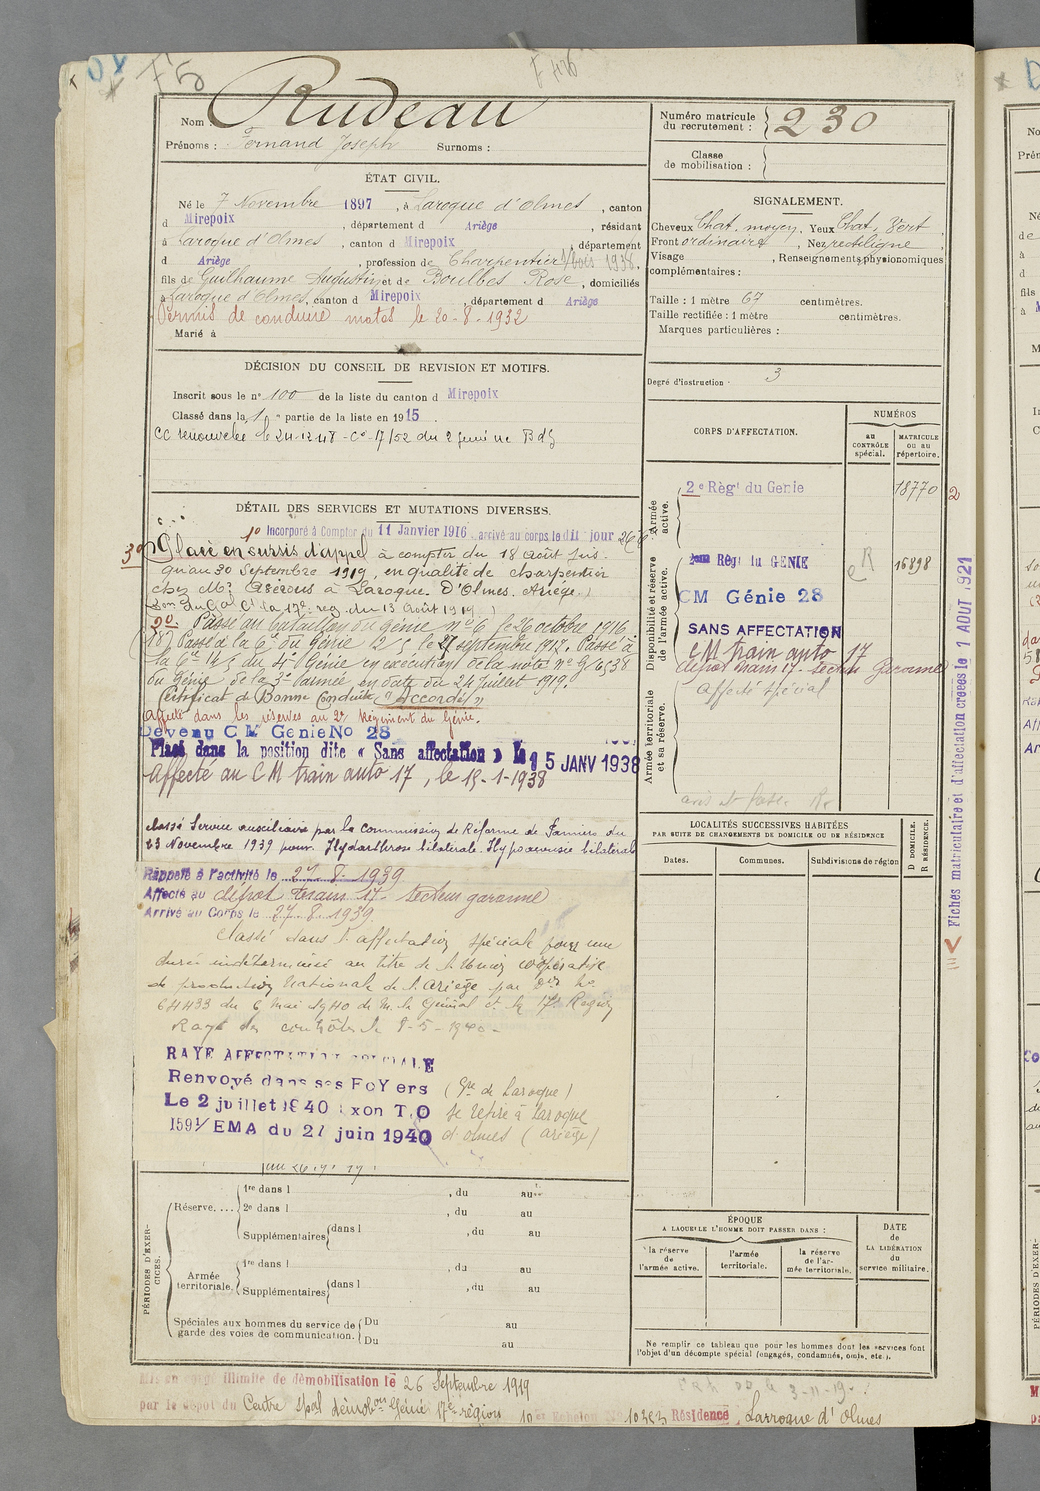 F5
Nom : Rudeau
Prénoms : Fernand Joseph Surnoms :
Numéro matricule du recrutement : 230
Classe de mobilisation :
ÉTAT CIVIL.
Né le 7 Novembre 1897, à Laroque d'Olmes, canton
d Mirepoix, département d Ariège, résidant
à Laroque d'Olmes, canton d Mirepoix, département
d Ariège, profession de Charpentier s/bois 1938.
fils de Guilhaume Augustin et de Boulbes Rose, domiciliés
à Laroque d'Olmes, canton d Mirepoix, département d Ariège
Permis de conduire motos le 20-8-1932
Marié à
SIGNALEMENT.
Cheveux Chat. moyen, Yeux Chat. Vert,
Front ordinaire, Nez rectiligne,
Visage , Renseignements physionomiques
complémentaires :
Taille : 1 mètre 67 centimètres.
Taille rectifiée : 1 mètre centimètres.
Marques particulières :
Degré d'instruction : 3
DÉCISION DU CONSEIL DE REVISION ET MOTIFS.
Inscrit sous le n° 100 de la liste du canton d Mirepoix
Classé dans la 1e partie de la liste en 1915.
CC renouvelée le 24-12-47 -
DÉTAIL DES SERVICES ET MUTATIONS DIVERSES.
1° Incorporé à Compter du 11 Janvier 1916, arrivé au corps le dit jour
3° Placé en sursis d'appel à compter du 18 Août jus-
qu'au 30 Septembre 1919, en qualité de charpentier
à Laroque. D'Olmes. Ariège.
du 13 Août 1919)
2° Passé au bataillon du génie n° 6 le 26 octobre 1916
Passé à la 6e du Génie le 27 septembre 1917. Passé à
la du 4e Génie en exécution de la note n°
du Génie de la 3e armée en date du 24 juillet 1919.
Certificat de Bonne Conduite "Accordé"
Affecté dans les réserves au 2e Régiment du Génie.
Devenu C M Génie No 28
Placé dans la position dite « Sans affectation » le 15 JANV 1938
Affecté au C M train auto 17, le 15-1-1938
Classé Service auxiliaire par la Commission de Réforme de Pamiers du
23 Novembre 1939 pour. Hydarthrose bilatérale. Hypoacousie bilatérale
Rappelé à l'activité le 27.8.1939
Affecté au dépôt train 17 - secteur garonne
Arrivé au Corps le 27.8.1939
Classé dans l'affectation spéciale pour une
durée indéterminée au titre de l'Union coopérative
de production Nationale de l'Ariège par
64433 du 6 Mai 1940 de M. le Général Ct la 17e Région
Rayé des contrôles le 8-5-1940 -
RAYE AFFECTATION SPECIALE
Renvoyé dans ses Foyers (Gie de Laroque)
Le 2 juillet 1940 Exon T.O se retire à Laroque
1591/EMA du 27 juin 1940 d'olmes (ariège)
CORPS D'AFFECTATION.
NUMÉROS
au CONTRÔLE spécial.
MATRICULE ou au répertoire.
Armée active.
2e Régt du Génie 18770
Disponibilité et réserve de l'armée active.
2ème Régt du GENIE 16898
CM Génie 28
SANS AFFECTATION
CM train auto 17
dépôt train 17 - secteur Garonne
Affecté spécial
Armée territoriale et sa réserve.
Fiches matriculaire et d'affectation créées le 1 AOUT 1921
LOCALITÉS SUCCESSIVES HABITÉES
PAR SUITE DE CHANGEMENTS DE DOMICILE OU DE RÉSIDENCE
D DOMICILE.
R RÉSIDENCE.
Dates. Communes. Subdivisions de région
PÉRIODES D'EXERCICES.
Réserve....
1re dans l , du au
2e dans l , du au
Supplémentaires dans l , du au
Armée territoriale.
1re dans l , du au
Supplémentaires dans l , du au
Spéciales aux hommes du service de garde des voies de communication.
Du au
Du au
ÉPOQUE
A LAQUELLE L'HOMME DOIT PASSER DANS :
la réserve de l'armée active.
l'armée territoriale.
la réserve de l'armée territoriale.
DATE DE LA LIBÉRATION du service militaire.
Ne remplir ce tableau que pour les hommes dont les services font
l'objet d'un décompte spécial (engagés, condamnés, omis, etc.).
Mis en congé illimité de démobilisation le 26 Septembre 1919
par le dépôt du Centre spal démobon Génie 17e région 10e Echelon N° 10383 Résidence Larroque d'Olmes